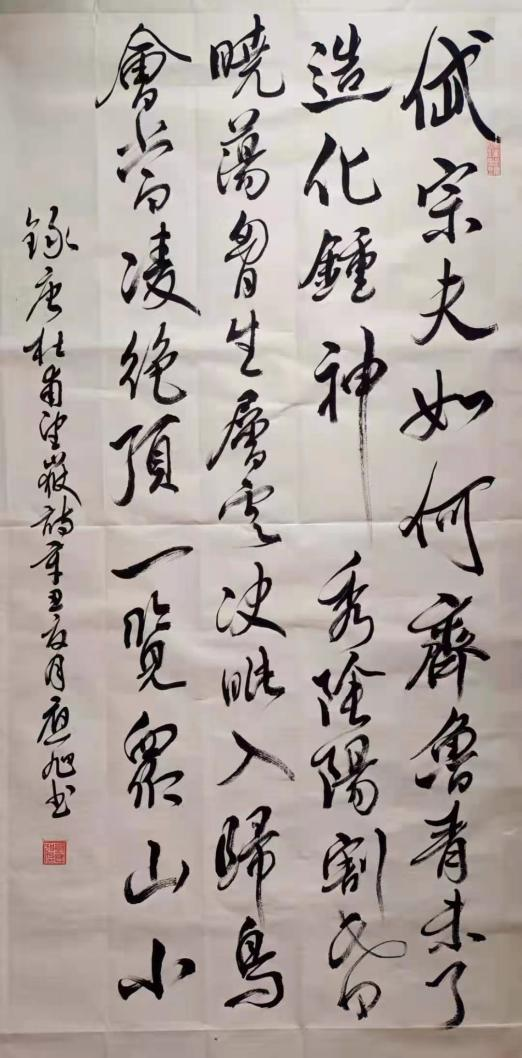 岱宗夫如何齊魯青未了
造化鍾神秀陰陽割昏
曉蕩胷生層雲决眦入歸鳥
會當凌絕頂一覽衆山小
錄唐杜甫望嶽詩辛丑夏月應旭書